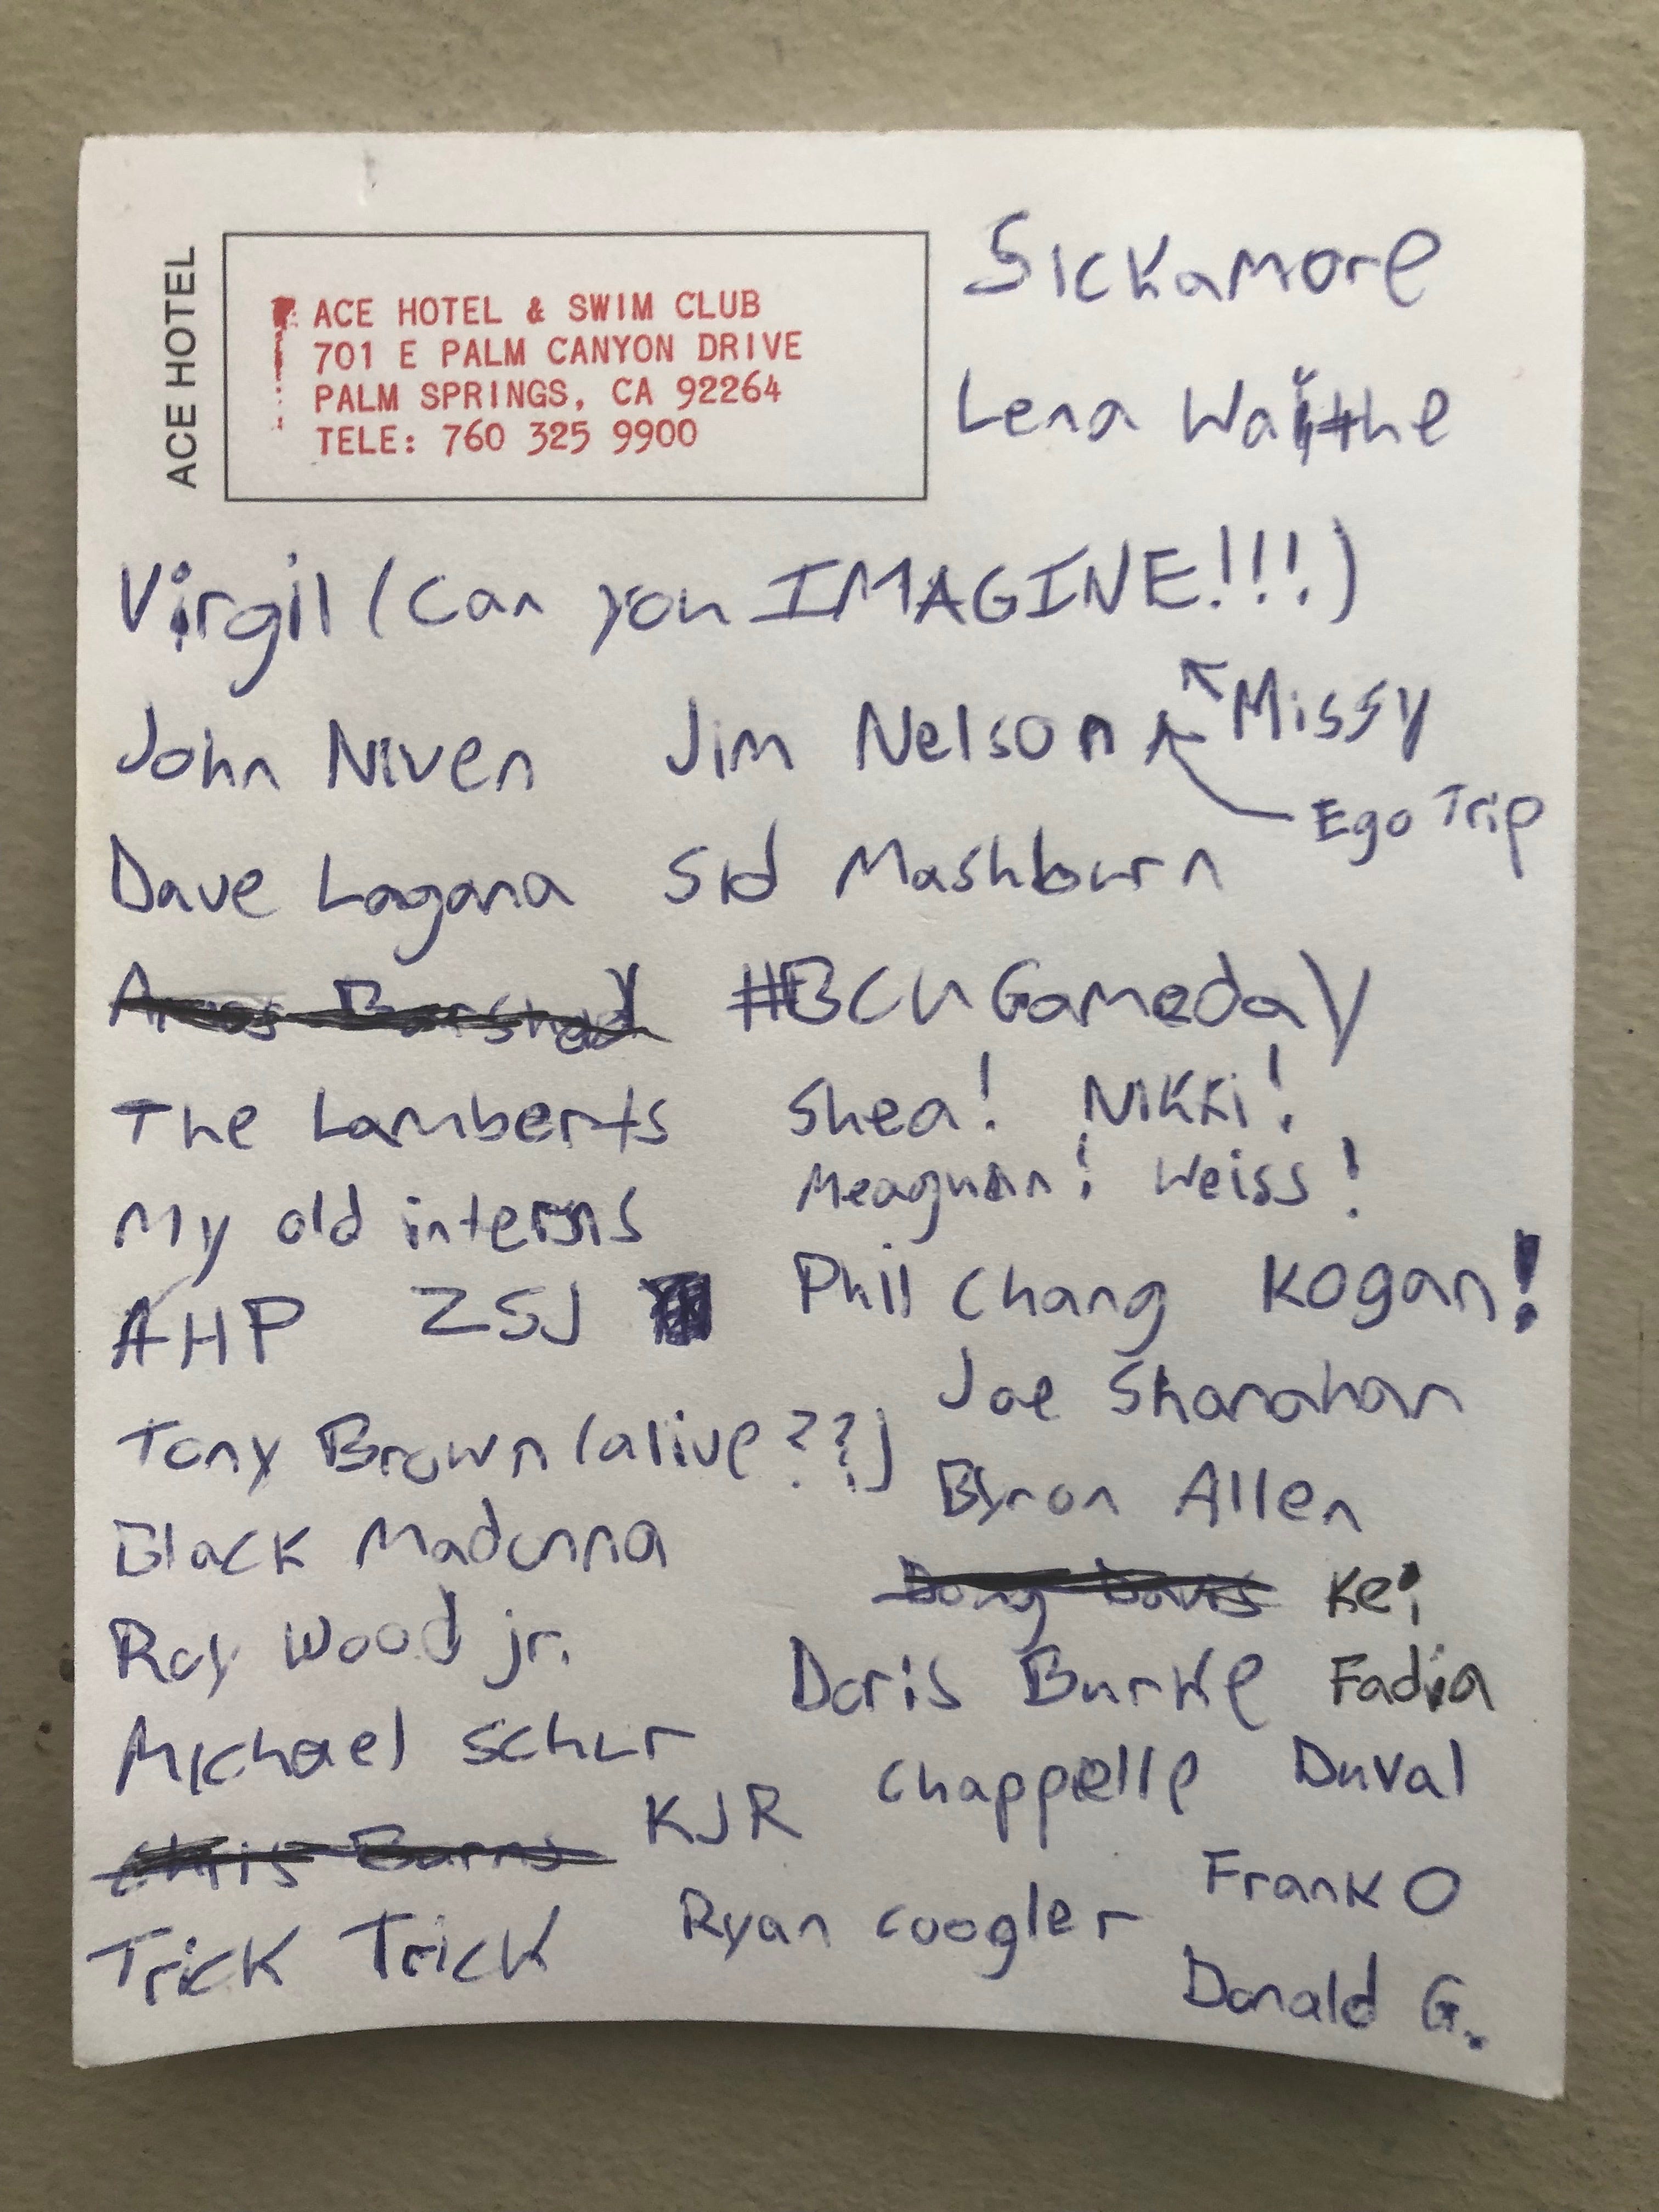 ACE HOTEL
ACE HOTEL & SWIM CLUB
701 E PALM CANYON DRIVE
PALM SPRINGS, CA 92264
TELE: 760 325 9900
Sickamore
Lena Waithe
Virgil (Can you IMAGINE!!!)
Missy
John Niven Jim Nelson
Ego Trip
Dave Lagana Sid Mashburn
Barshad #BCUGameday
The Lamberts Shea! Nikki!
Meaghan! Weiss!
My old interns
AHP ZSJ Phil Chang Kogan!
Joe Shanahan
Tony Brown (alive??)
Byron Allen
Black Madonna
Doug Davis Kei
Roy Wood jr.
Doris Burke Fadia
Michael Schur
Chappelle Duval
Chris Burns KJR
Frank O
Trick Trick Ryan Coogler
Donald G.